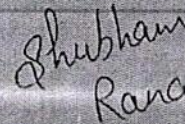 Shubham
Rana